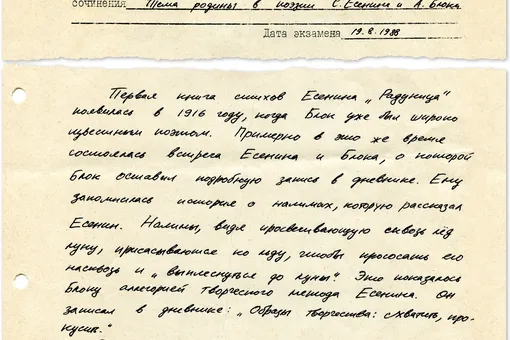 сочинения Тема родины в поэзии С. Есенина и А. Блока
Дата экзамена 19.8.1988
Первая книга стихов Есенина „Радуница"
появилась в 1916 году, когда Блок уже был широко
известным поэтом. Примерно в это же время
состоялась встреча Есенина и Блока, о которой
Блок оставил подробную запись в дневнике. Ему
запомнилась история о налимах, которую рассказал
Есенин. Налимы, видя просвечивающую сквозь лёд
луну, присасываются ко льду, чтобы прососать его
насквозь и „выплеснуться до луны". Это показалось
Блоку аллегорией творческого метода Есенина. Он
записал в дневнике: „Образы творчества: схватить, про-
кусить."